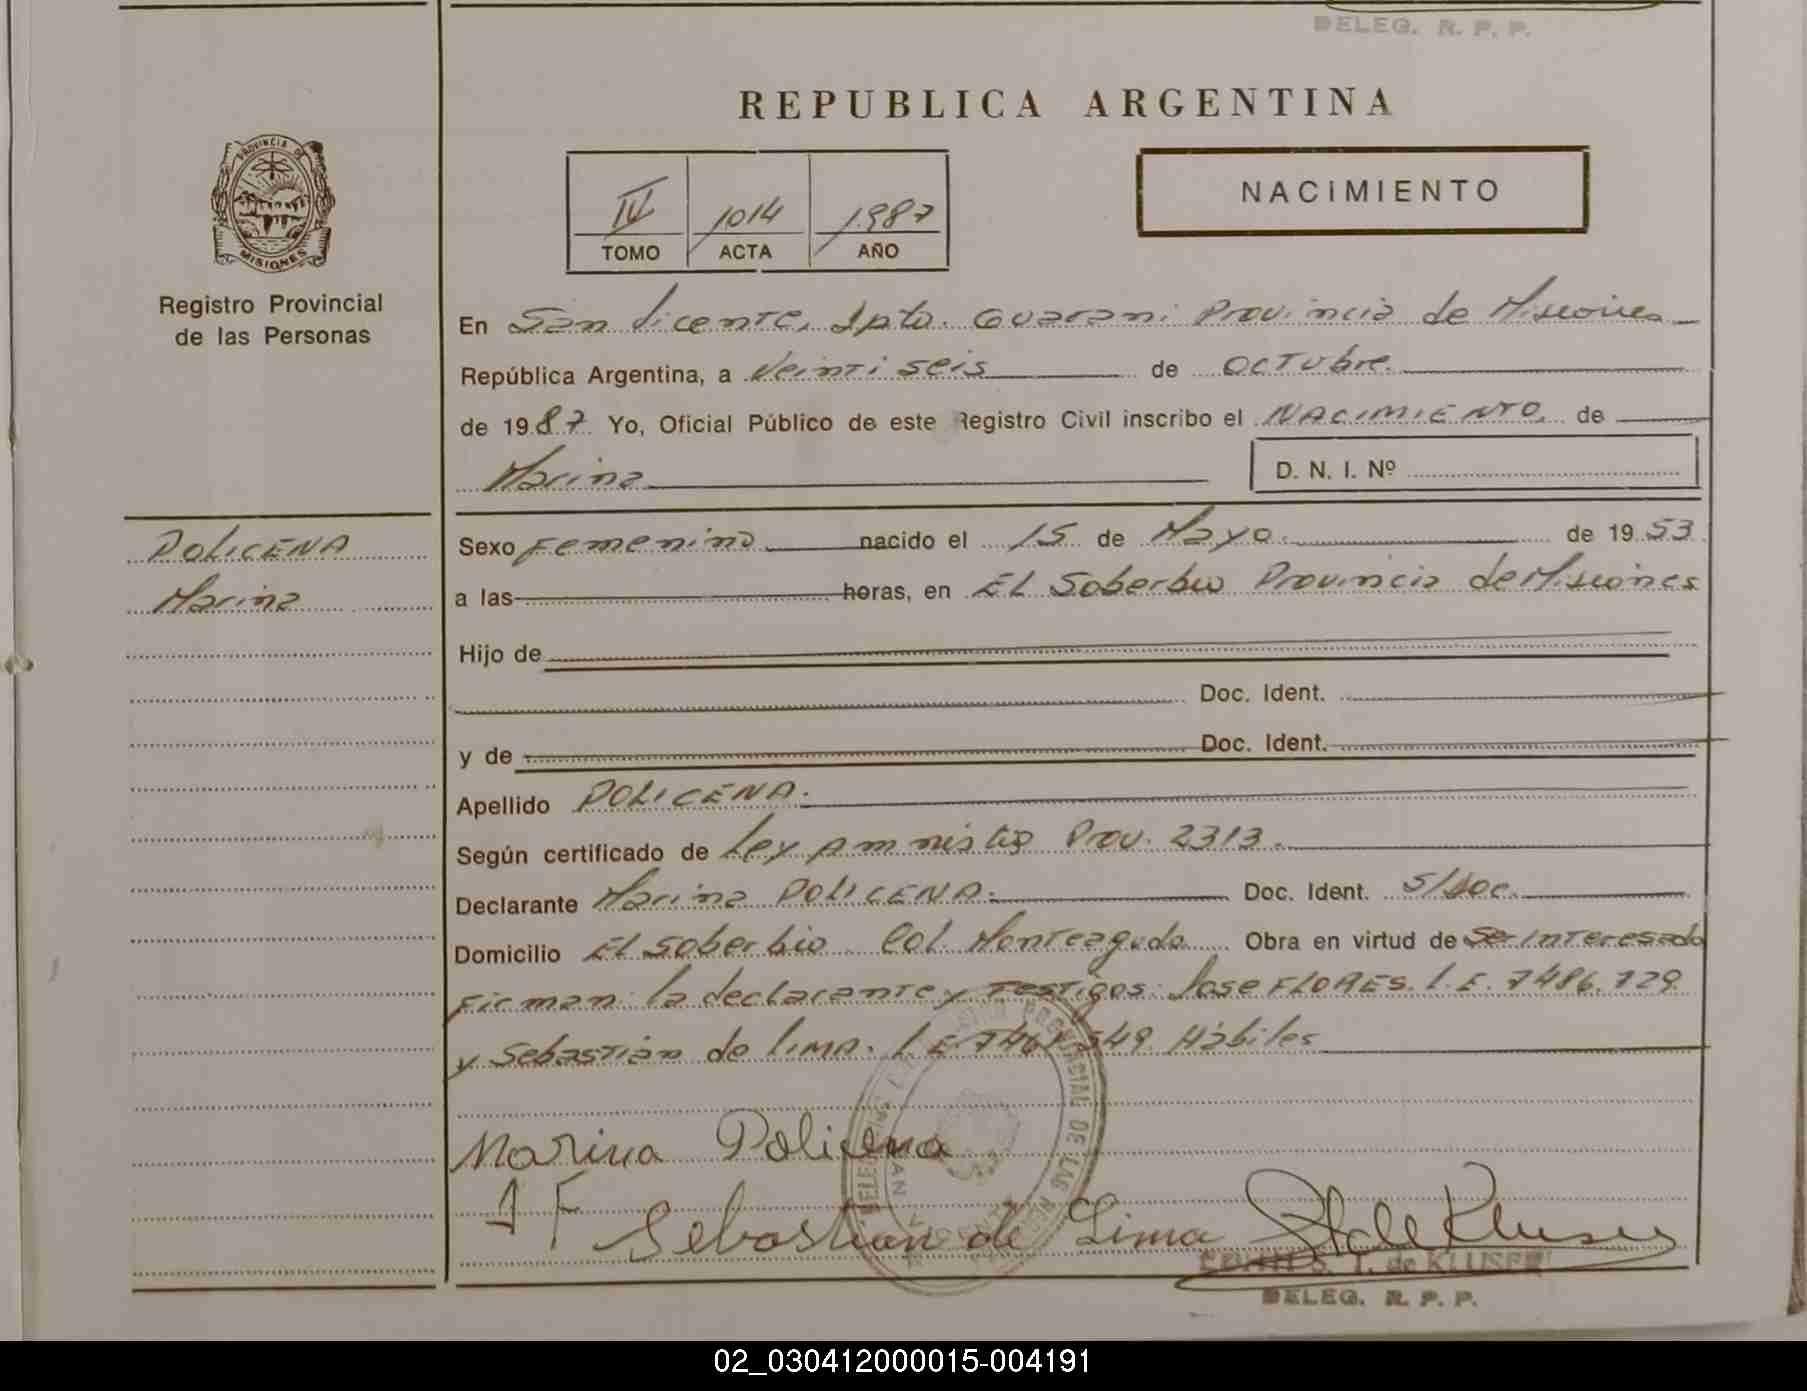 DELEG. R. P. P.
REPUBLICA ARGENTINA
PROVINCIA DE
MISIONES
Registro Provincial
de las Personas
IV 1014 1987
TOMO ACTA AÑO
NACIMIENTO
En San Vicente, Dpto. Guarani Provincia de Misiones
República Argentina, a Veintiseis de Octubre.
de 1987 Yo, Oficial Público de este Registro Civil inscribo el NACIMIENTO de
Marina
D. N. I. Nº
POLICENA
Marina
Sexo Femenino nacido el 15 de Mayo. de 1953
a las horas, en El Soberbio Provincia de Misiones
Hijo de
Doc. Ident.
y de Doc. Ident.
Apellido POLICENA.
Según certificado de Ley Amnistia Prov. 2313.
Declarante Marina POLICENA. Doc. Ident. S/doc.
Domicilio El Soberbio Col. Monteagudo Obra en virtud de Ser Interesado
Firman: la declarante y Testigos: Jose FLORES. L.E. 7486.729
y Sebastián de LIMA. L.E. Hábiles
Marina Policena
J F Sebastian de Lima
T. de KLUSER
DELEG. R. P. P.
02_030412000015-004191